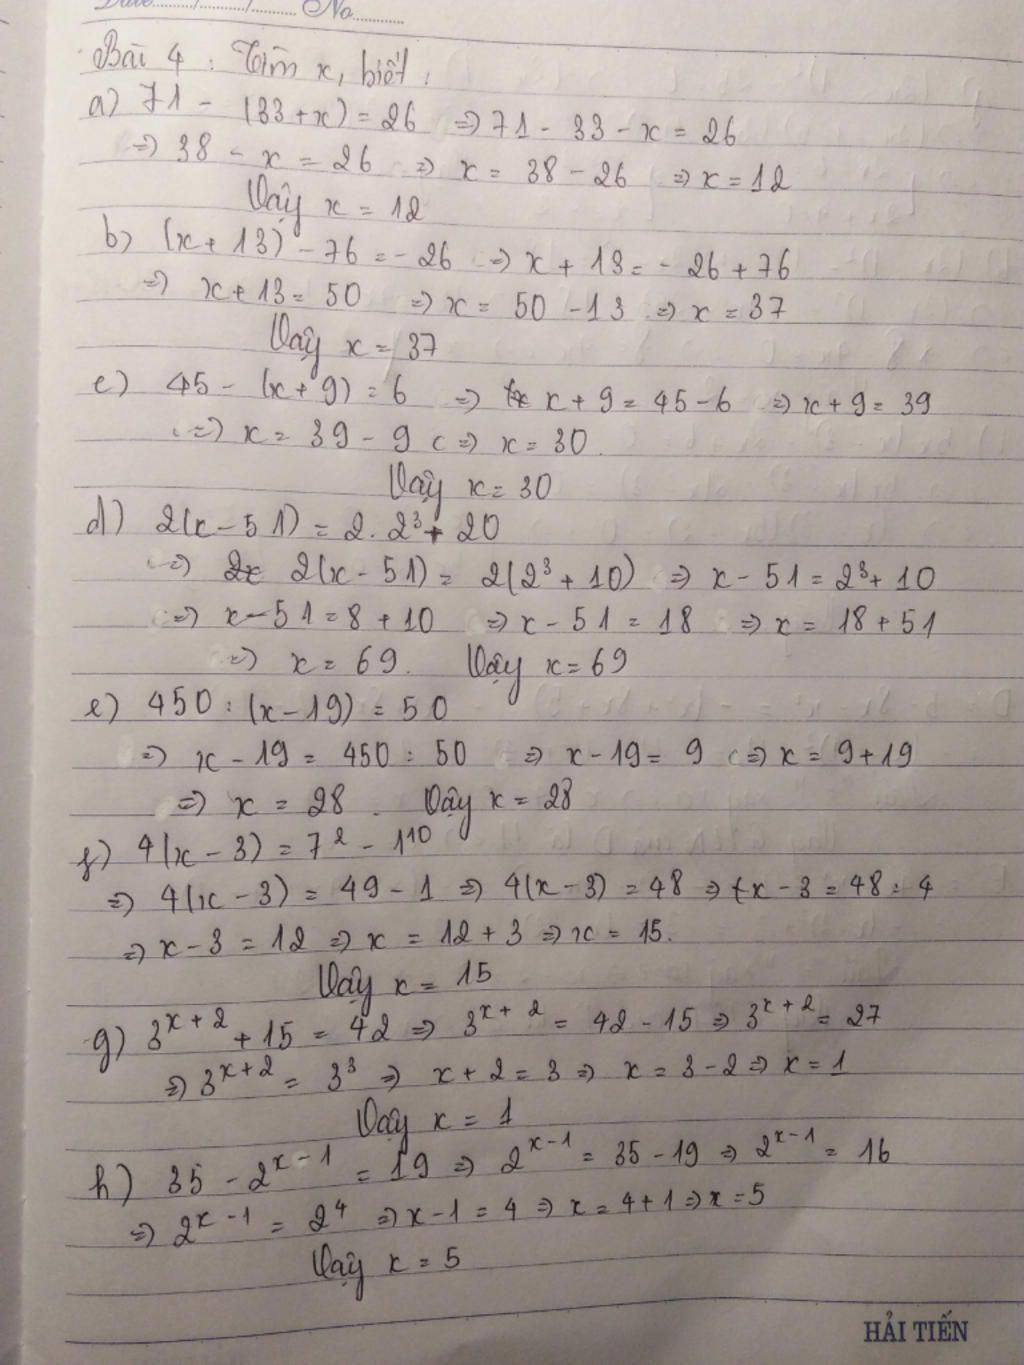 Date...../...../.......... No..........
Bài 4 : Tìm x, biết :
a) 71 - (33+x) = 26 => 71 - 33 - x = 26
=> 38 - x = 26 => x = 38 - 26 => x = 12
Vậy x = 12
b) (x + 13) - 76 = - 26 => x + 13 = - 26 + 76
=> x + 13 = 50 => x = 50 - 13 => x = 37
Vậy x = 37
c) 45 - (x + 9) = 6 => x + 9 = 45 - 6 => x + 9 = 39
=> x = 39 - 9 => x = 30
Vậy x = 30
d) 2(x - 51) = 2. 2³ + 20
=> 2(x - 51) = 2(2³ + 10) => x - 51 = 2³ + 10
=> x - 51 = 8 + 10 => x - 51 = 18 => x = 18 + 51
=> x = 69. Vậy x = 69
e) 450 : (x - 19) = 50
=> x - 19 = 450 : 50 => x - 19 = 9 => x = 9 + 19
=> x = 28. Vậy x = 28
f) 4(x - 3) = 7² - 1¹⁰
=> 4(x - 3) = 49 - 1 => 4(x - 3) = 48 => x - 3 = 48 : 4
=> x - 3 = 12 => x = 12 + 3 => x = 15.
Vậy x = 15
g) 3^x + 2 + 15 = 42 => 3^x + 2 = 42 - 15 => 3^x + 2 = 27
=> 3^x + 2 = 3³ => x + 2 = 3 => x = 3 - 2 => x = 1
Vậy x = 1
h) 35 - 2^x - 1 = 19 => 2^x - 1 = 35 - 19 => 2^x - 1 = 16
=> 2^x - 1 = 2⁴ => x - 1 = 4 => x = 4 + 1 => x = 5
Vậy x = 5
HẢI TIẾN